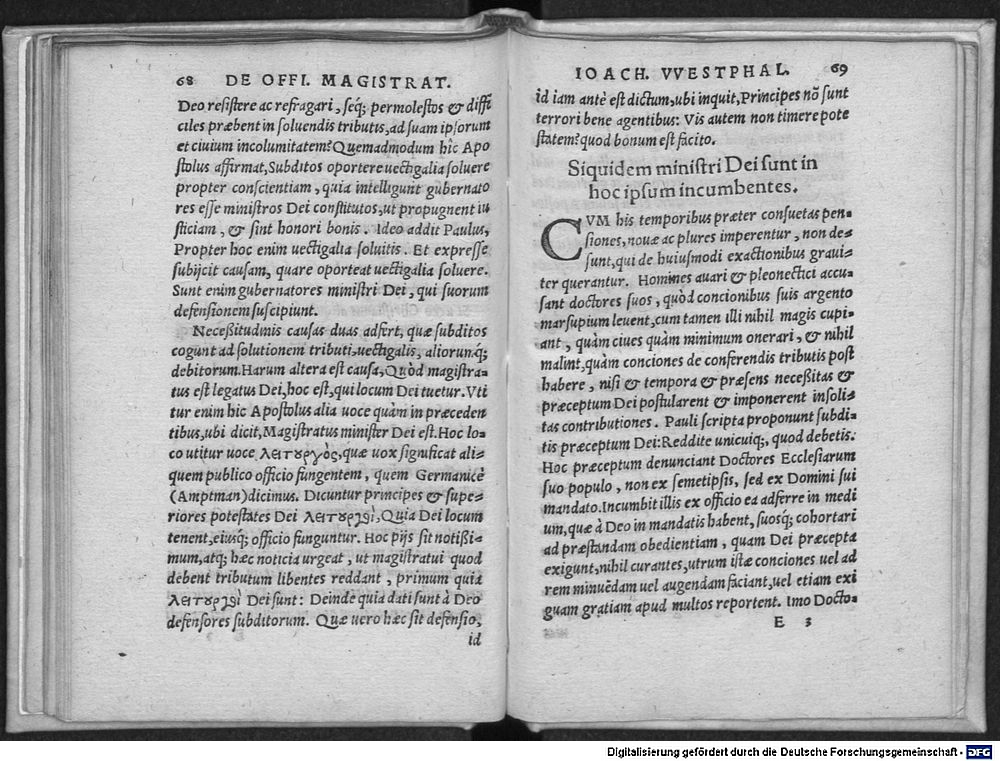 68 DE OFFI. MAGISTRAT.
Deo resistere ac refragari, seq́; permolestos & diffi
ciles præbent in soluendis tributis, ad suam ipsorum
et ciuium incolumitatem? Quemadmodum hîc Apo
stolus affirmat, Subditos oportere uectigalia soluere
propter conscientiam, quia intelligunt gubernato
res esse ministros Dei constitutos, ut propugnent iu
sticiam, & sint honori bonis. Ideo addit Paulus,
Propter hoc enim uectigalia soluitis. Et expresse
subijcit causam, quare oporteat uectigalia soluere.
Sunt enim gubernatores ministri Dei, qui suorum
defensionem suscipiunt.
Necessitudinis causas duas adfert, quæ subditos
cogunt ad solutionem tributi, uectigalis, aliorumq́;
debitorum. Harum altera est causa, Quòd magistra-
tus est legatus Dei, hoc est, qui locum Dei tuetur. Vti
tur enim hîc Apostolus alia uoce quàm in præceden
tibus, ubi dicit, Magistratus minister Dei est. Hoc lo-
co utitur uoce λειτουργὸς, quæ uox significat ali-
quem publico officio fungentem, quem Germanicè
(Amptman) dicimus. Dicuntur principes & supe-
riores potestates Dei λειτουργοὶ, Quia Dei locum
tenent, eiusq́; officio funguntur. Hoc pijs sit notissi-
mum, atq́; hæc noticia urgeat, ut magistratui quod
debent tributum libentes reddant, primum quia
λειτουργοὶ Dei sunt: Deinde quia dati sunt à Deo
defensores subditorum. Quæ uero hæc sit defensio,
id
IOACH. VVESTPHAL. 69
id iam antè est dictum, ubi inquit, Principes nõ sunt
terrori bene agentibus: Vis autem non timere pote
statem? quod bonum est facito.
Siquidem ministri Dei sunt in
hoc ipsum incumbentes.
CVM his temporibus præter consuetas pen-
siones, nouæ ac plures imperentur, non de-
sunt, qui de huiusmodi exactionibus graui-
ter querantur. Homines auari & pleonectici accu-
sant doctores suos, quòd concionibus suis argento
marsupium leuent, cum tamen illi nihil magis cupi-
ant, quàm ciues quàm minimum onerari, & nihil
malint, quàm conciones de conferendis tributis post
habere, nisi & tempora & præsens necessitas &
præceptum Dei postularent & imponerent insoli-
tas contributiones. Pauli scripta proponunt subdi-
tis præceptum Dei: Reddite unicuiq́;, quod debetis.
Hoc præceptum denunciant Doctores Ecclesiarum
suo populo, non ex semetipsis, sed ex Domini sui
mandato. Incumbit illis ex officio ea adferre in medi
um, quæ à Deo in mandatis habent, suosq́; cohortari
ad præstandam obedientiam, quam Dei præcepta
exigunt, nihil curantes, utrum istæ conciones uel ad
rem minuẽdam uel augendam faciant, uel etiam exi
guam gratiam apud multos reportent. Imo Docto-
E 3
Digitalisierung gefördert durch die Deutsche Forschungsgemeinschaft - DFG